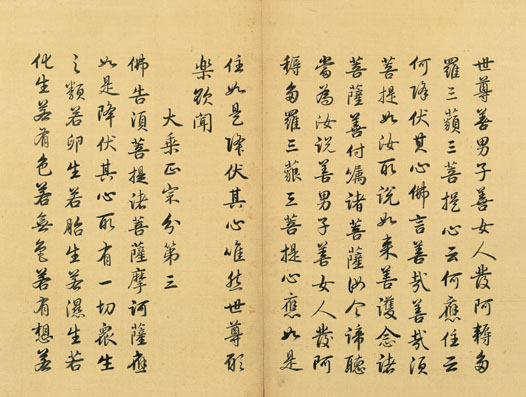 世尊善男子善女人發阿耨多
羅三藐三菩提心云何應住云
何降伏其心佛言善哉善哉須
菩提如汝所說如来善護念諸
菩薩善付囑諸菩薩汝今諦聽
當為汝說善男子善女人發阿
耨多羅三藐三菩提心應如是
住如是降伏其心唯然世尊願
樂欲聞
大乘正宗分第三
佛告須菩提諸菩薩摩訶薩應
如是降伏其心所有一切衆生
之類若卵生若胎生若濕生若
化生若有色若無色若有想若